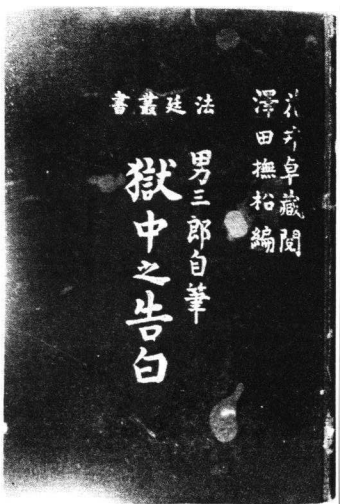 花井卓藏閲
澤田撫松編
法廷叢書
男三郎自筆
獄中之告白